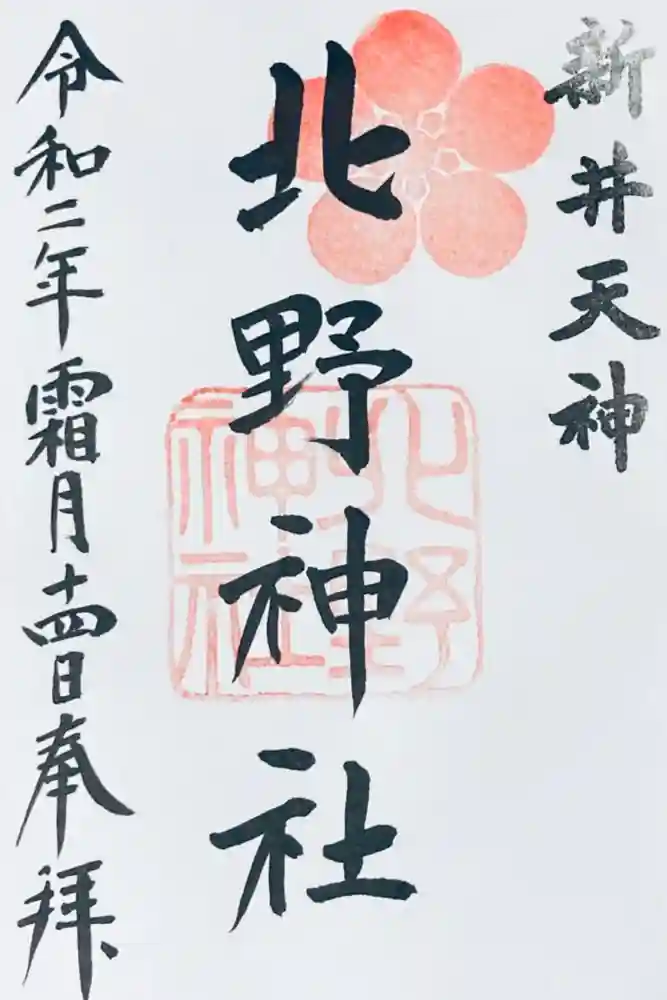 新井天神
北野神社
北野
神社
令和二年霜月十四日奉拝